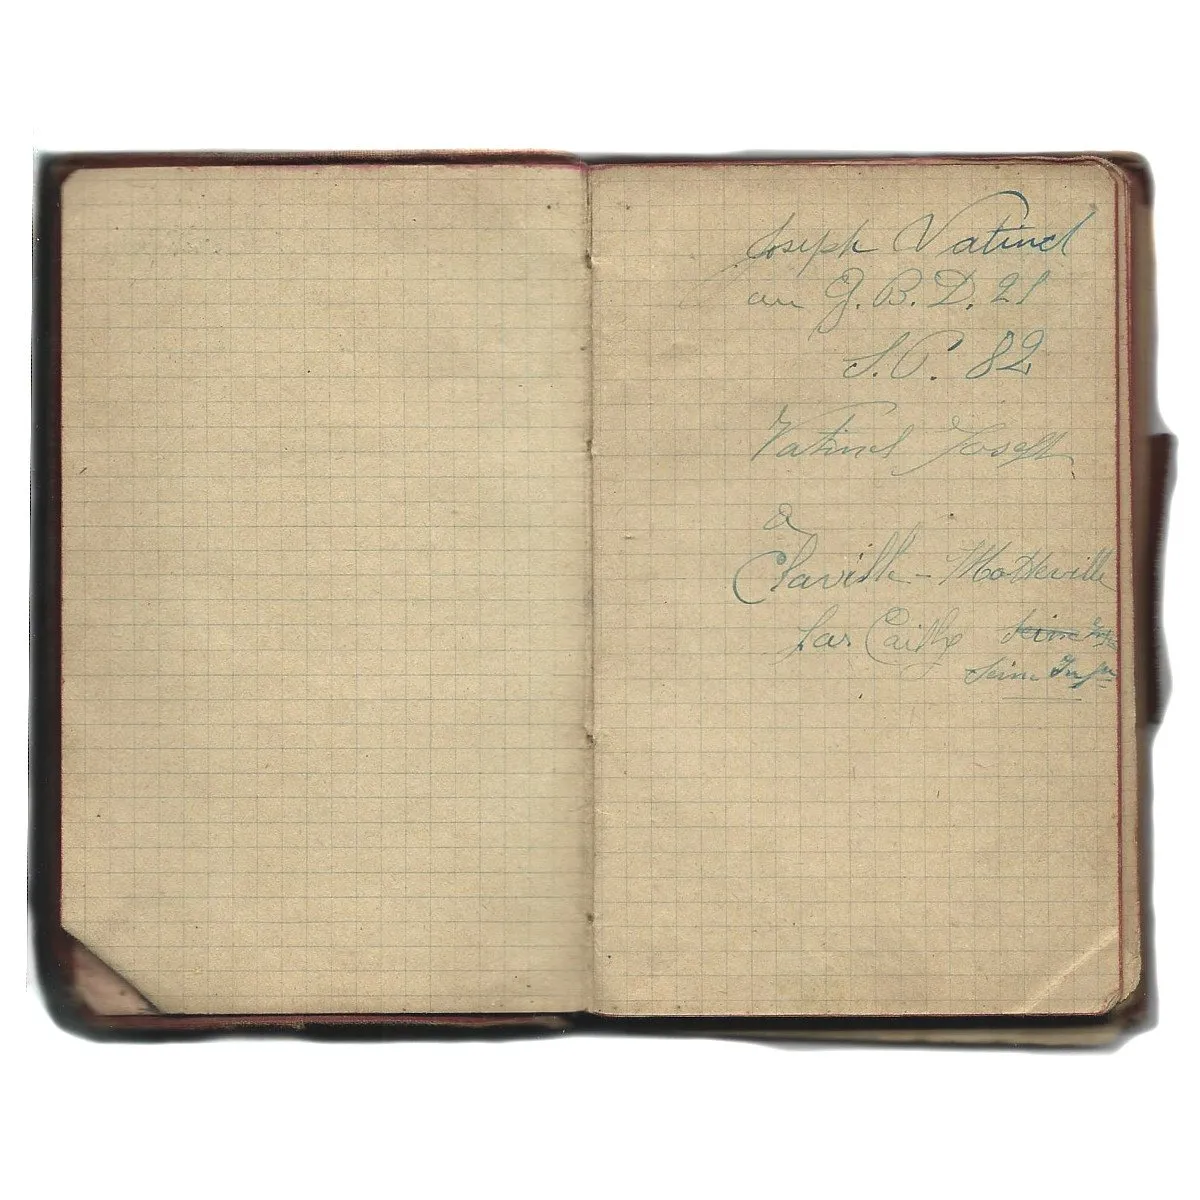 Joseph Vatinel
au G. B. D. 21
S. P. 82
Vatinel Joseph
à
Claville-Motteville
par Cailly Seine Infre
Seine Infre